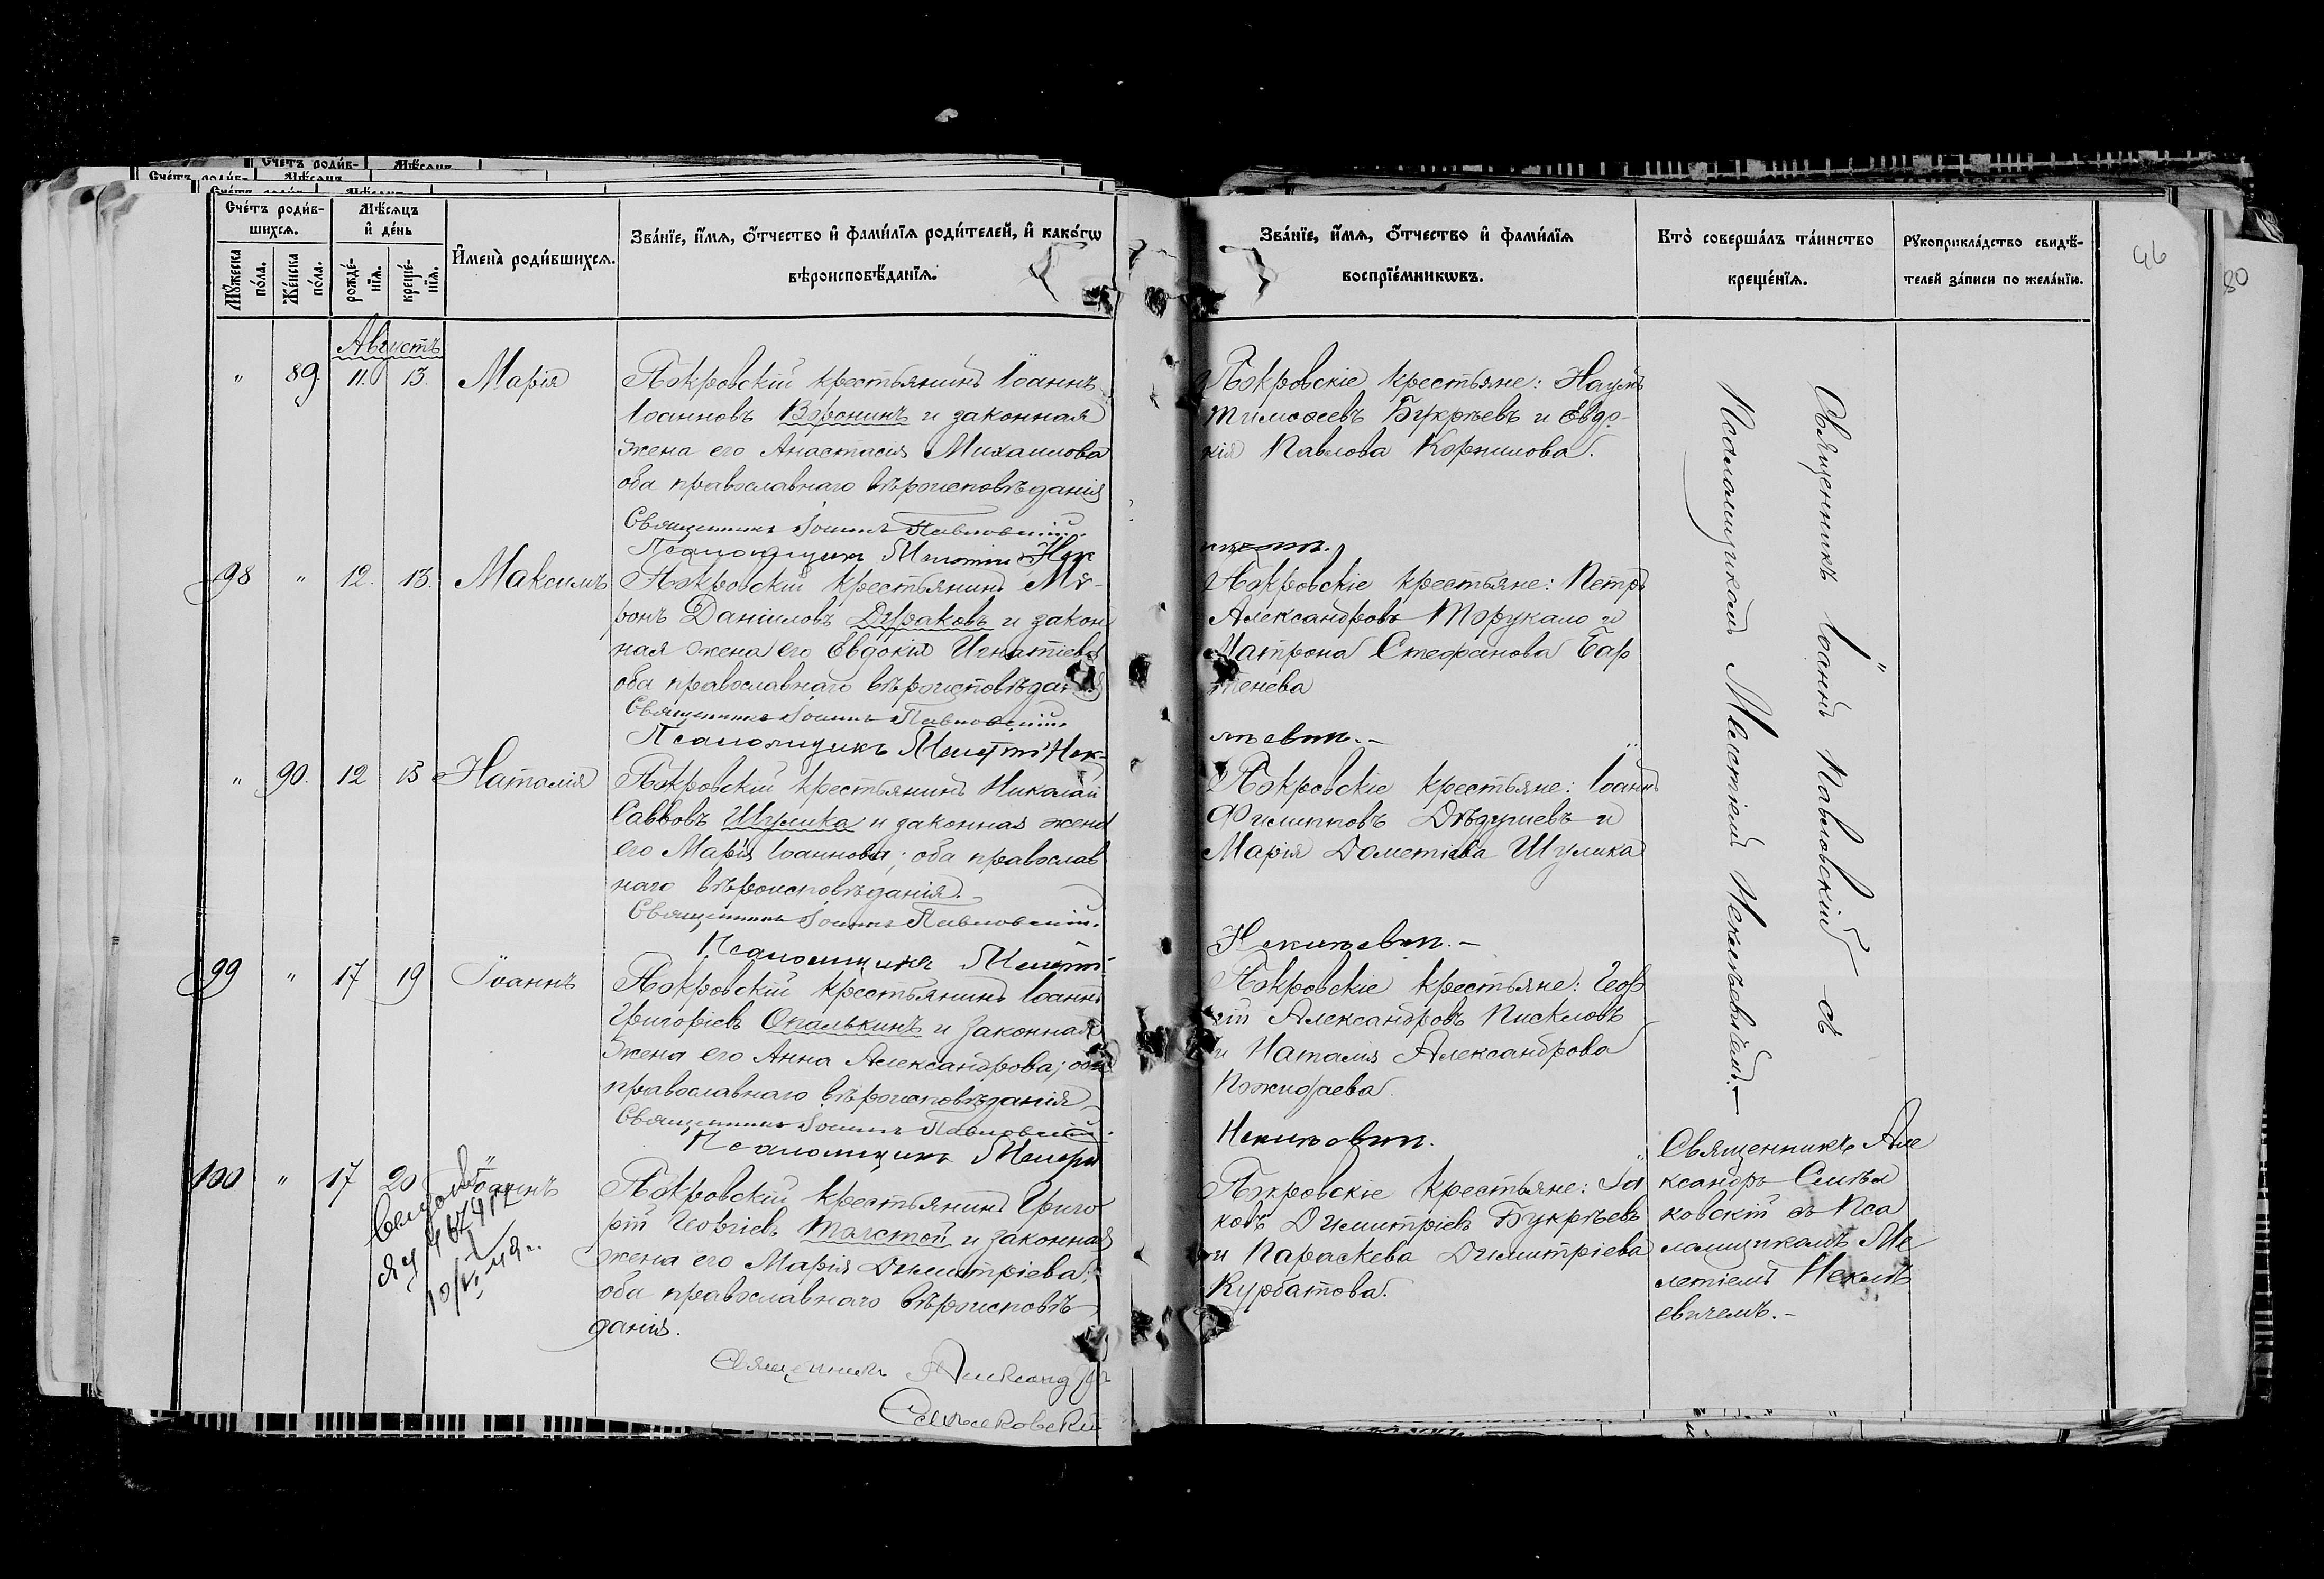 Счетъ родив-
шихся.
Мѣсяцъ
и день
Имена родившихся.
Званіе, имя, отчество и фамилія родителей, и какогѡ
вѣроисповѣданія.
Мужеска пола.
Женска пола.
рожде-
нія.
креще-
нія.
Званіе, имя, отчество и фамилія
воспріемникѡвъ.
Кто совершалъ таинство
крещенія.
Рукоприкладство свидѣ-
телей записи по желанію.
46
80
Августъ
" 89. 11. 13. Марія
Покровскій крестьянинъ Іоаннъ
Іоанновъ Воронинъ и законная
жена его Анастасія Михаилова
оба православнаго вѣроисповѣданія
Священникъ Іоаннъ Павловскій.
Псаломщикъ Мелетій Нек
Покровскіе крестьяне: Наумъ
Тимоѳеевъ Букрѣевъ и Евдо-
кія Павлова Корнилова.
98 " 12. 13. Максимъ
Покровскій крестьянинъ Мѵ-
ронъ Даніиловъ Дураковъ и закон
ная жена его Евдокія Игнатіева
оба православнаго вѣроисповѣданія
Священникъ Іоаннъ Павловскій.
Псаломщикъ Мелетій Нек-
Покровскіе крестьяне: Петръ
Александровъ Торукало и
Матрона Стефанова Бар
менева
" 90. 12 13 Наталія
Покровскій крестьянинъ Николай
Саввовъ Шулика и законная жена
его Марія Іоаннова; оба православ
наго вѣроисповѣданія.
Священникъ Іоаннъ Павловскій.
Псаломщикъ Мелетій
Покровскіе крестьяне: Іоаннъ
Филипповъ Дѣдушевъ и
Марія Дометіева Шулика
99 " 17 19 Іоаннъ
Покровскій крестьянинъ Іоаннъ
Григоріевъ Опалькинъ и законная
жена его Анна Александрова; оба
православнаго вѣроисповѣданія
Священникъ Іоаннъ Павловскій.
Псаломщикъ Мелетій
Покровскіе крестьяне: Геор
гій Александровъ Пискловъ
и Наталія Александрова
Пожидаева.
Священникъ Іоаннъ Павловскій съ
Псаломщикомъ Мелетіемъ Неклѣевичемъ.
100 " 17 20 Іоаннъ
Покровскій крестьянинъ Григо
рій Георгіевъ Толстой и законная
жена его Марія Димитріева;
оба православнаго вѣроисповѣ-
данія.
Священникъ Александръ
Покровскіе крестьяне: Іа
ковъ Димитріевъ Букрѣевъ
и Параскева Димитріева
Курбатова.
Священникъ Але
ксандръ Синьл
ковскій съ Пса
ломщикомъ Ме
летіемъ Неклѣ
евичемъ.